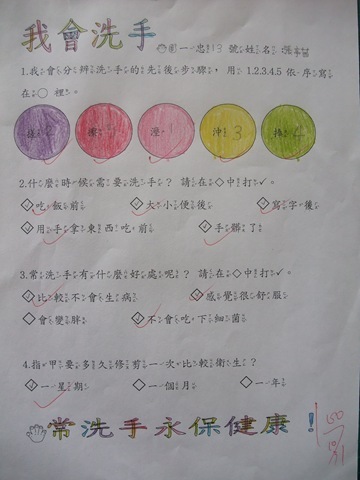 我會洗手 一忠13號姓名:
1.我會分辨洗手的先後步驟,用1.2.3.4.5依序寫
在○裡。
搓2 擦5 溼1 沖3 捧4
2.什麼時候需要洗手?請在◇中打✓。
◇✓吃飯前 ◇✓大小便後 ◇✓寫字後
◇✓用手拿東西吃前 ◇✓手髒了
3.常洗手有什麼好處呢?請在◇中打✓。
◇✓比較不會生病 ◇✓感覺很舒服
◇會變胖 ◇✓不會吃下細菌
4.指甲要多久修剪一次比較衛生?
◇✓一星期 ◇一個月 ◇一年
常洗手永保健康!
100
10/31